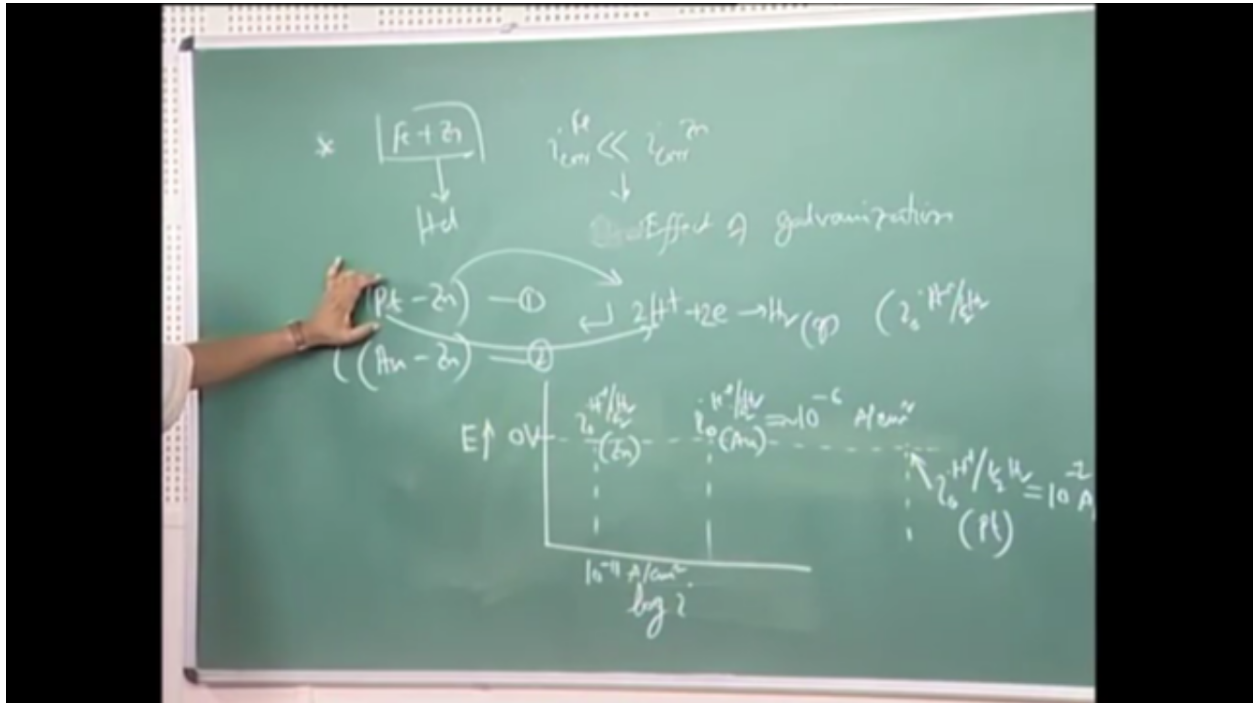 * Fe + Zn i corr Fe << i corr Zn
Hcl
Effect of galvanization
(Pt - Zn) — ① 2H+ + 2e → H2 (g) (i0 H+/H2
((Au - Zn) — ②
E↑ 0V i0 H+/H2 (Zn) i0 H+/H2 (Au) = ~10-6 A/cm2
i0 H+/½ H2 = 10-2 A
(Pt)
10-11 A/cm2
log i